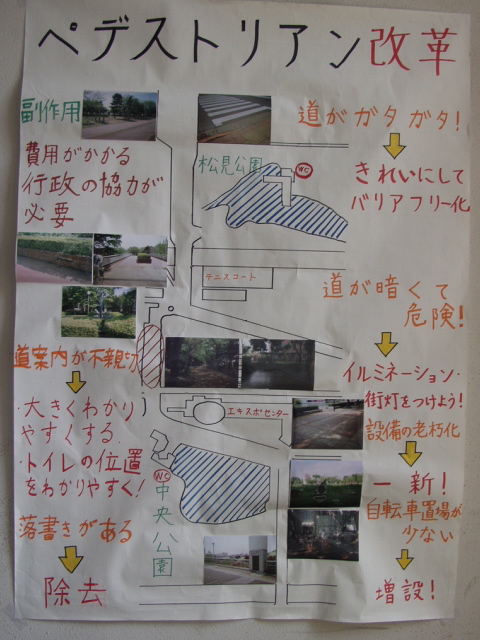 ペデストリアン改革
副作用
費用がかかる
行政の協力が
必要
道がガタガタ!
きれいにして
バリアフリー化
松見公園
WC
テニスコート
道が暗くて
危険!
イルミネーション・
街灯をつけよう!
道案内が不親切
・大きくわかり
やすくする.
・トイレの位置
をわかりやすく!
エキスポセンター
設備の老朽化
一新!
WC
中央公園
自転車置場が
少ない
増設!
落書きがある
除去